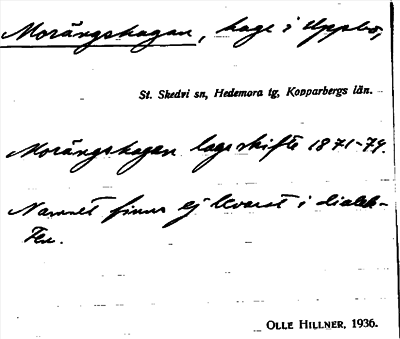 Morängshagan, hage i Uppbo,
St. Skedvi sn, Hedemora tg, Kopparbergs län.
Morängshagan laga skifte 1871-79.
Namnet finns ej kvar i dialek-
ten.
OLLE HILLNER, 1936.